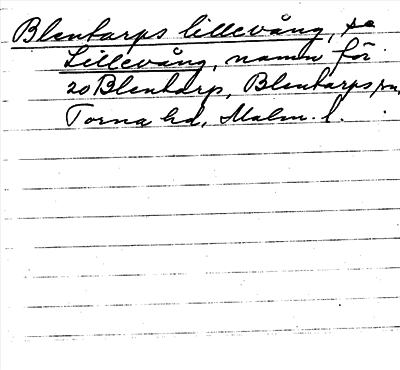 Blentarps lillevång, se
Lillevång, namn för
20 Blentarp, Blentarps sn,
Torna hd, Malm. l.